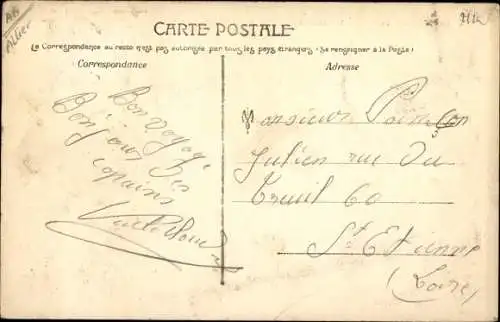 AK
Allier
CARTE POSTALE
La Correspondance au recto n'est pas autorisée par tous les pays étrangers (Se renseigner à la Poste)
Correspondance
Adresse
Bon voyage
Bonjour les
copains
Monsieur
Julien rue du
Treuil 60
St Etienne
(Loire)